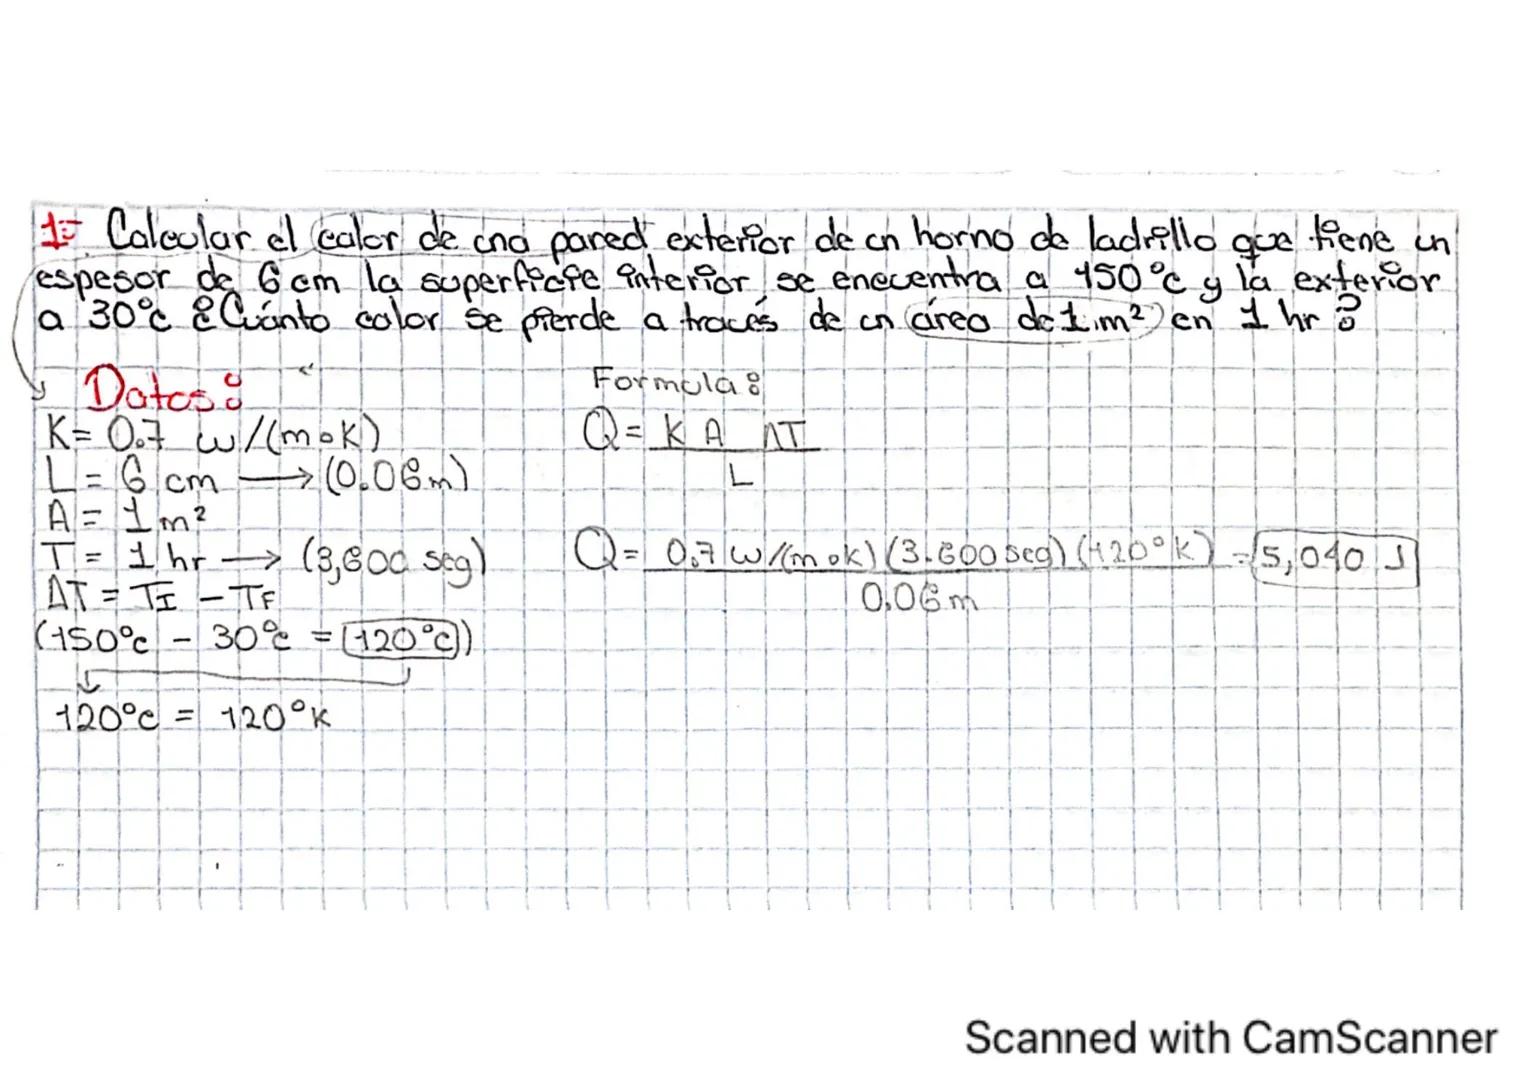 1:- Calcular el calor de una pared exterior de un horno de ladrillo que tiene un
espesor de 6 cm la superficie interior se encuentra a 150°c y la exterior
a 30°c ¿Cuánto calor se pierde a través de un área de 1 m² en 1 hr?
Datos:
Formula:
K= 0.7 w/(m∘K)
Q= K A ΔT
L
L = 6 cm → (0.06m)
A= 1 m²
T= 1 hr → (3,600 seg)
Q= 0.7 w/(m∘k) (3.600 seg) (120°K) = 5,040 J
0.06 m
ΔT = TI - TF
(150°c - 30°c = 120°c))
120°c = 120°K
Scanned with CamScanner